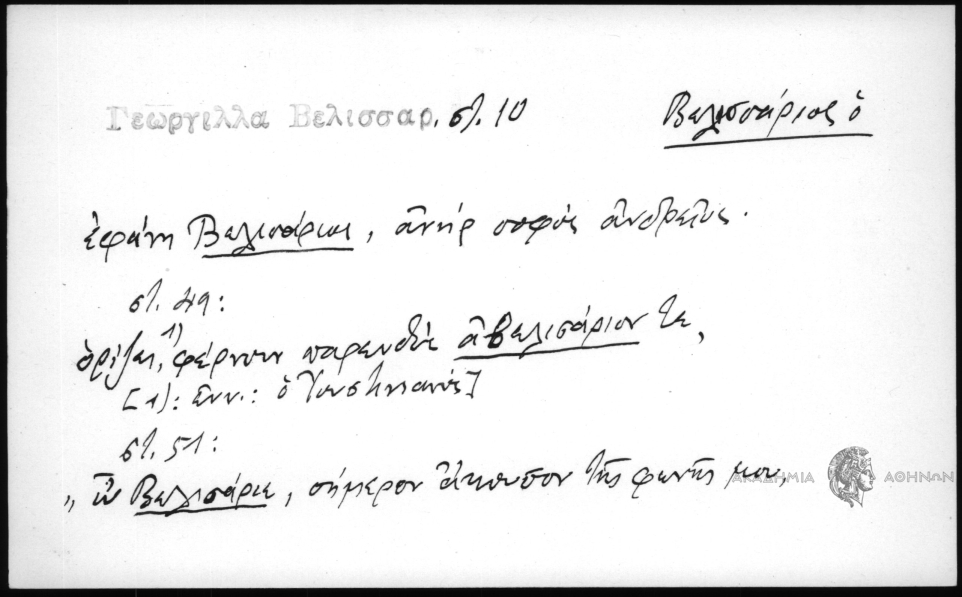 Γεωργιλλα Βελισσαρ. στ. 10 Βελισσάριος ὁ
ἐφάνη Βελισάριος, ἀνὴρ σοφὸς ἀνδρεῖος.
στ. 49:
ὁρίζει,¹⁾ φέρνουν παρευθὺς
[1): ἐνν.: ὁ Ἰουστινιανός]
στ. 51:
„ ὦ Βελισάριε, σήμερον ἄκουσον τῆς φωνῆς μου,
ΑΚΑΔΗΜΙΑ ΑΘΗΝΩΝ